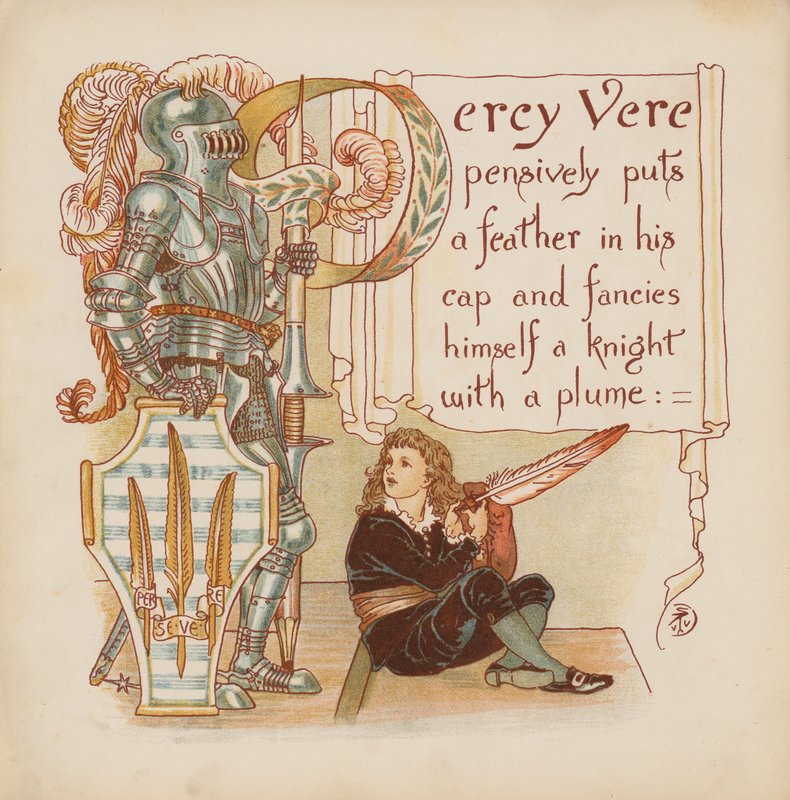 Percy Vere
pensively puts
a feather in his
cap and fancies
himself a knight
with a plume : =
PER
SE·VE·
RE